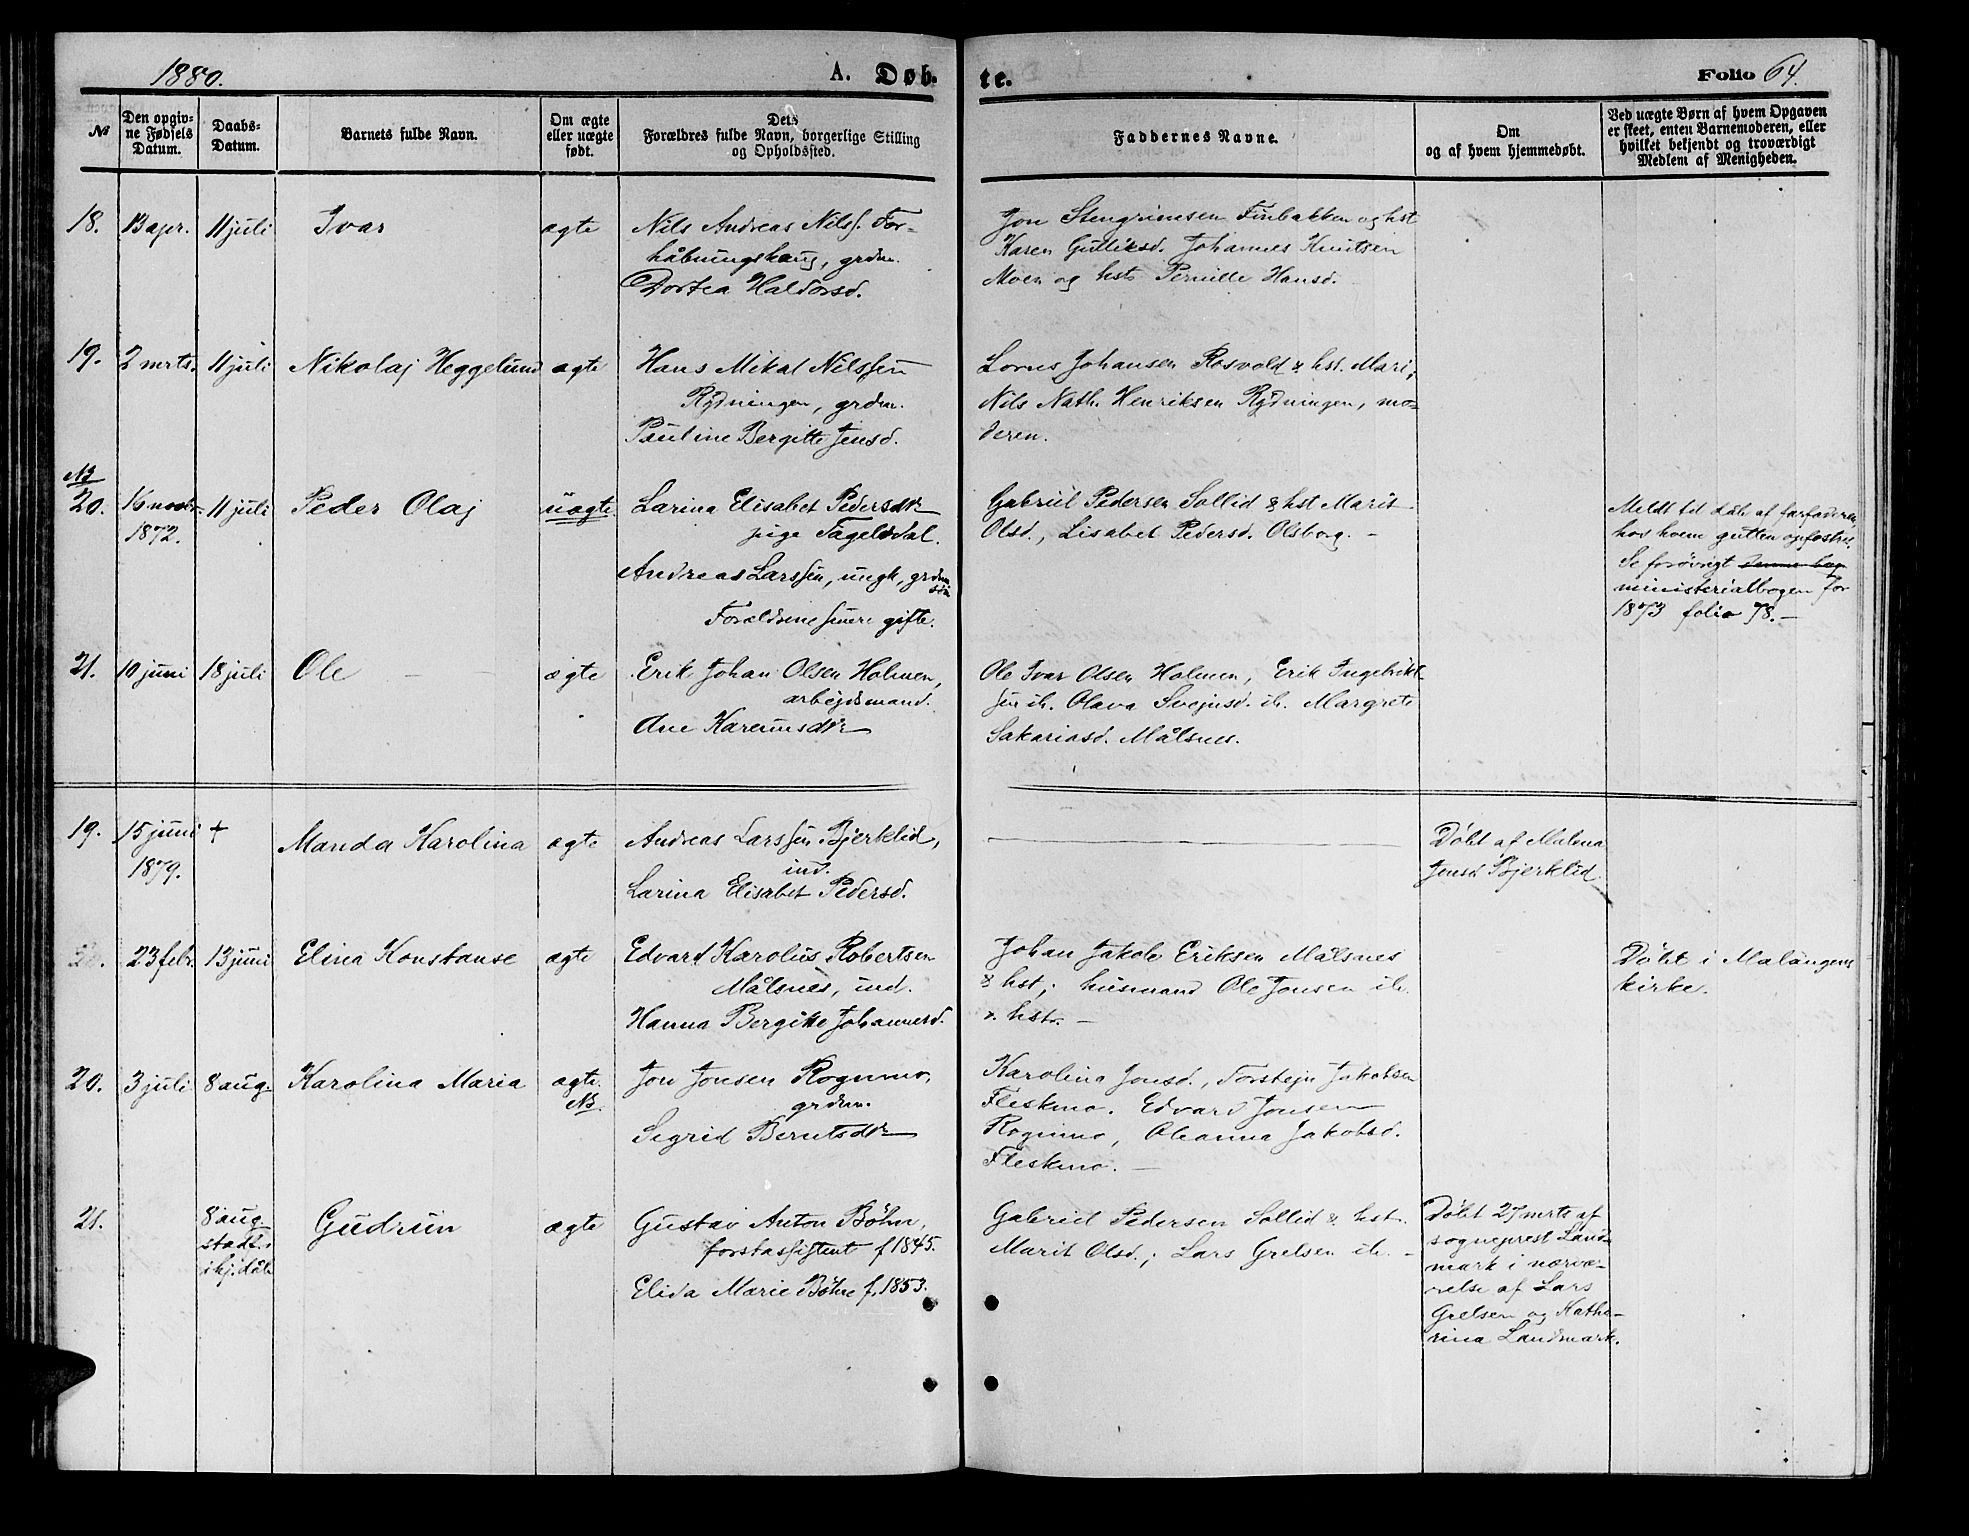 1880. A. Døb- te. Folio 64.
№
Den opgiv-
ne Fødsels
Datum.
Daabs-
Datum.
Barnets fulde Navn.
Om ægte
eller uægte
født.
Dets
Forældres fulde Navn, borgerlige Stilling
og Opholdssted.
Faddernes Navne.
Om
og af hvem hjemmedøbt.
Ved uægte Børn af hvem Opgaven
er skeet, enten Barnemoderen, eller
hvilket bekjendt og troværdigt
Medlem af Menigheden.
18. 13 apr. 11 juli Ivar ægte
Nils Andreas Nilss. For-
håbningshaug, grdm.
Dortea Haldorsd.
Jon Stengrimsen Finbakken og hst
Karen Gulliksd. Johannes Knutsen
Moen og hst Pernille Hansd.
19. 2 mrts. 11 juli Nikolaj Heggelund ægte
Hans Mikal Nilssen
Rydningen, grdm.
Pauline Bergitte Jensd.
Lorns Johansen Rosvold & hst. Mari,
Nils Nath. Henriksen Rydningen, mo-
deren.
NB
20. 16 novbr. 11 juli Peder Olaj uægte
1872.
Larina Elisabet Pedersdtr
pige Fagelidal.
Andreas Larssen, ungk, grdm
søn
Forældrene senere gifte.
Gabriel Pedersen Sollid & hst Marit
Olsd., Lisabet Pedersd. Olsborg. -
Meldt til dåb af farfaderen,
hos hvem gutten opfostres.
Se forøvrigt denne bog
ministerialbogen for
1873 folio 78. -
21. 10 juni 18 juli Ole ægte
Erik Johan Olsen Holmen,
arbejdsmand.
Ane Karenusdtr
Ole Ivar Olsen Holmen, Erik Ingebrikt-
sen ib. Olava Svejnsd. ib. Margrete
Sakariasd. Målsnes.
19. 15 juni + Manda Karolina ægte
1879.
Andreas Larssen Bjerklid,
ind.
Larina Elisabet Pedersd.
Døbt af Malena
Jensd Bjerklid
23 febr. 13 juni Elina Konstanse ægte
Edvard Karolius Robertsen
Målsnes, ind.
Hanna Bergitte Johannesd.
Johan Jakob Eriksen Målsnes
& hst; husmand Ole Jonsen ib.
& hst. -
Døbt i Malangens
kirke.
20. 3 juli 8 aug. Karolina Maria ægte.
NB.
Jon Jonsen Rognmo,
grdm.
Sigrid Berntsdtr
Karolina Jonsd., Torstejn Jakobsen
Fleskmo. Edvard Jonsen
Rognmo, Oleanna Jakobsd.
Fleskmo. -
21. 8 aug. Gudrun ægte
stadf.
i hj.dåb
Gustav Anton Bøhm,
forstassistent f 1845.
Elida Marie Bøhn f. 1853.
Gabriel Pedersen Sollid & hst.
Marit Olsd.; Lars Grelsen ib. -
Døbt 27 mrts af
sogneprest Land-
mark i nærvæ-
relse af Lars
Grelsen og Katha-
rina Landmark.